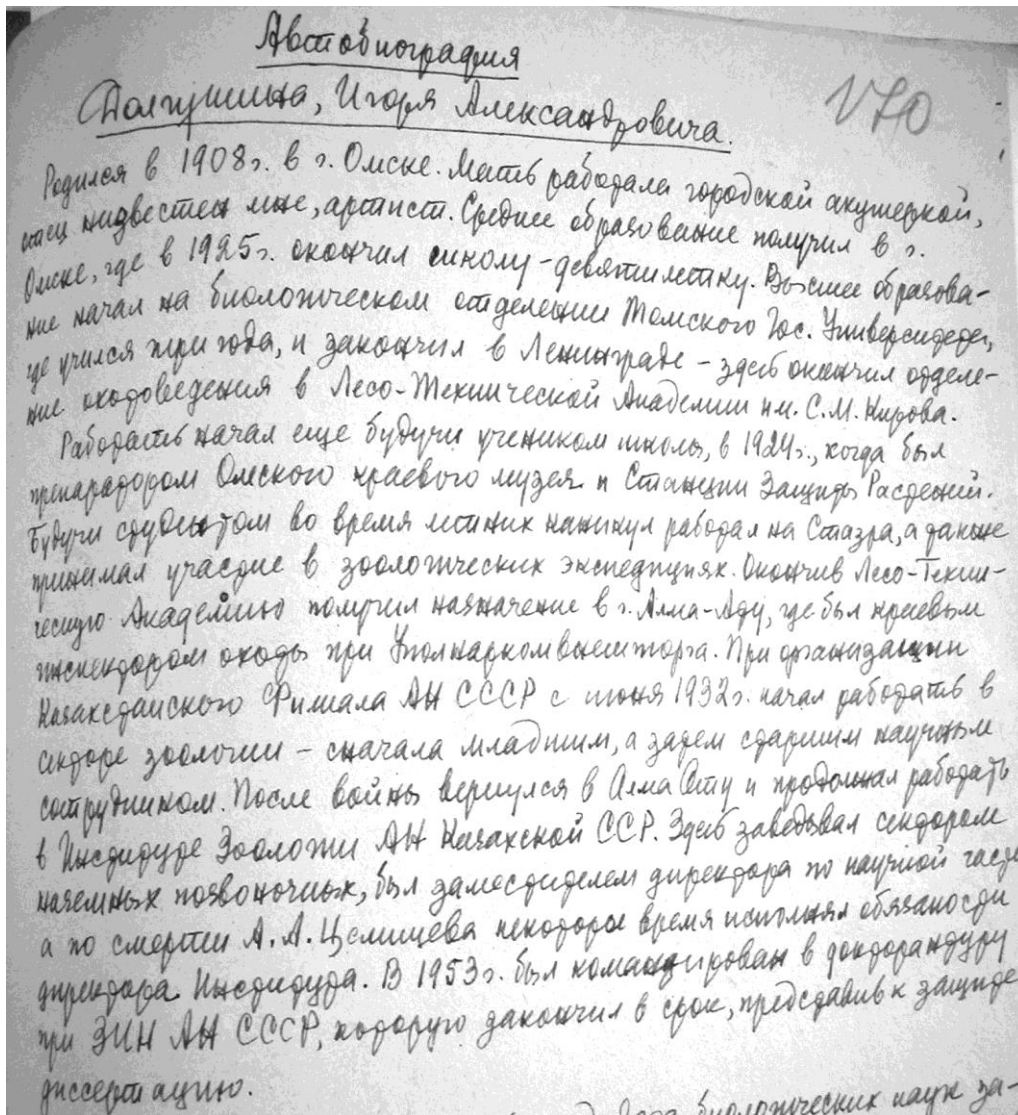 Автобиография
Долгушина, Игоря Александровича.
170
Родился в 1908г. в г. Омске. Мать работала городской акушеркой,
отец неизвестен мне, артист. Среднее образование получил в г.
Омске, где в 1925г. окончил школу-девятилетку. Высшее образова-
ние начал на биологическом отделении Томского Гос. Университета,
где учился три года, и закончил в Ленинграде – здесь окончил отделе-
ние охотоведения в Лесо-Технической Академии им. С.М. Кирова.
Работать начал еще будучи учеником школы, в 1924г., когда был
препаратором Омского краевого музея и Станции Защиты Растений.
Будучи студентом во время летних каникул работал на Стазра, а также
принимал участие в зоологических экспедициях. Окончив Лесо-Техни-
ческую Академию получил назначение в г. Алма-Ату, где был краевым
инспектором охоты при Уполнаркомвнешторга. При организации
Казахстанского Филиала АН СССР с июня 1932г. начал работать в
секторе зоологии – сначала младшим, а затем старшим научным
сотрудником. После войны вернулся в Алма Ату и продолжал работать
в Институте Зоологии АН Казахской ССР. Здесь заведывал сектором
наземных позвоночных, был заместителем директора по научной части
а по смерти А.А. Целищева некоторое время исполнял обязаности
директора Института. В 1953г. был командирован в докторантуру
при ЗИН АН СССР, которую закончил в срок, представив к защите
диссертацию.
биологических наук за-